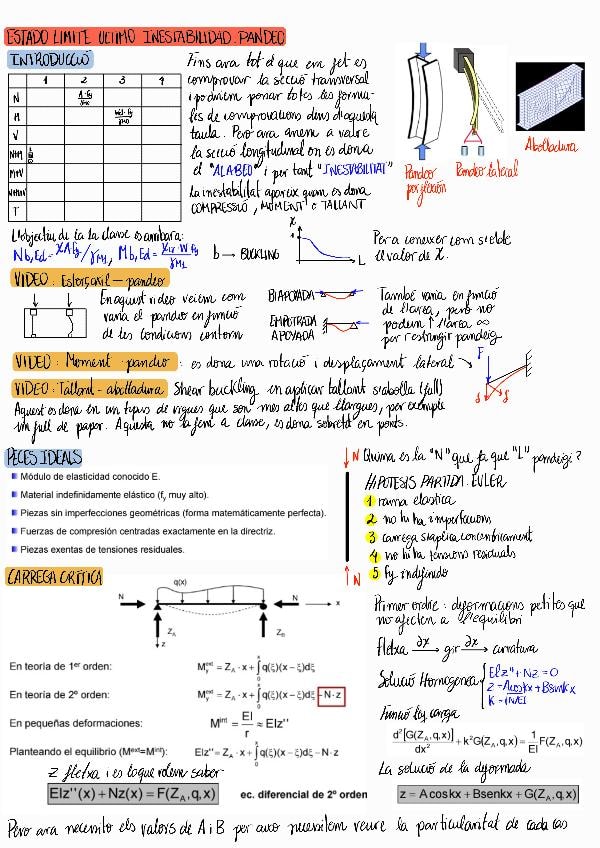 ESTADO LIMITE ULTIMO INESTABILIDAD. PANDEO
INTRODUCCIÓ
1 2 3 4
N
M
V
N+M
M+V
N+M+V
T
Fins ara tot el que em fet es
comprovar la secció transversal
i podriem posar totes les formu-
les de comprovacions dins d'aquesta
taula. Pero ara anem a valore
la secció longitudinal on es dona
el "ALABEO" i per tant "INESTABILITAT"
La inestabilitat apareix quan es dona
COMPRESSIÓ, MOMENT o TALLANT
Pandeo
por flexión
Pandeo lateral
Abolladura
L'objectiu de tota la classe es arribar a:
Nb,Ed = χ A fy / γM1 , Mb,Ed = χLT · W fy / γM1
b → BUCKLING
χ
1
L
Per a coneixer com si es el de
el valor de χ.
VIDEO: Esforç axil – pandeo
En aquest video veiem com
varia el pandeo en funció
de les condicions contorn
BIAPOYADA
EMPOTRADA
APOYADA
També varia en funció
de l'àrea, pero no
podem ↑ l'àrea ∞
per restringir pandeig
VIDEO: Moment - pandeo: es dona una rotació i desplaçament lateral
F
VIDEO: Tallant - abolladura Shear buckling en aplicar tallant s'abolla (full)
Aquest es dona en un tipus de vigues que son mes altes que llargues, per exemple
un full de paper. Aquesta no la fem a classe, es dona sobretot en ponts.
PECES IDEALS
Módulo de elasticidad conocido E.
Material indefinidamente elástico (fy muy alto).
Piezas sin imperfecciones geométricas (forma matemáticamente perfecta).
Fuerzas de compresión centradas exactamente en la directriz.
Piezas exentas de tensiones residuales.
N
N
Quina es la "N" que fa que "L" pandeigi?
HIPOTESIS PARTIDA. EULER
1 rama elastica
2 no hi ha imperfeccions
3 carrega s'aplica concentricament
4 no hi ha tensions residuals
5 fy indefinido
CARREGA CRÍTICA
q(x)
N N x
ZA ZB
z
En teoría de 1er orden: Myext = ZA · x + ∫0x q(ξ)(x − ξ)dξ
En teoría de 2º orden: Myext = ZA · x + ∫0x q(ξ)(x − ξ)dξ − N · z
En pequeñas deformaciones: Mint = EI/r ≈ EIz''
Planteando el equilibrio (Mext=Mint): EIz'' = ZA · x + ∫0x q(ξ)(x − ξ)dξ − N · z
z fletxa i es lo que volem saber
EIz''(x) + Nz(x) = F(ZA,q,x) ec. diferencial de 2º orden
Primer ordre: deformacions petites que
no afecten a l'equilibri
Fletxa ∂x → gir ∂x → curvatura
Solució Homogenea
EIz'' + Nz = 0
z = A cos kx + B sen kx
k = √N/EI
Funció de carga
d²[G(ZA,q,x)]/dx² + k²G(ZA,q,x) = 1/EI F(ZA,q,x)
La solució de la deformada
z = A cos kx + B sen kx + G(ZA,q,x)
Pero ara necesito els valors de A i B per aixo necesitem veure la particularitat de cada cas